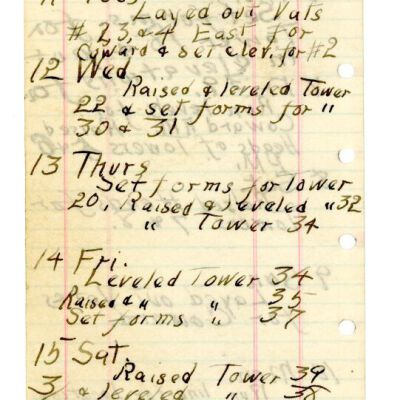 11 Tues
Layed out Vats
# 2, 3, & 4 East for
Coward & set elev. for #2
12 Wed
Raised & leveled Tower
22 & set forms for "
30 & 31
13 Thurs
Set forms for lower
20, Raised & leveled " 32
" Tower 34
14 Fri.
Leveled Tower 34
Raised & " " 35
Set forms " 37
15 Sat.
Raised Tower 39
& leveled " 38